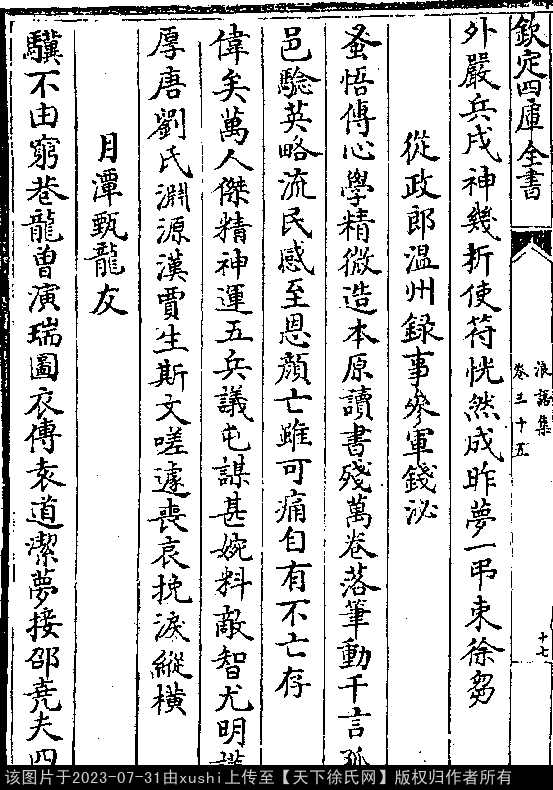 欽定四庫全書
浪語集
卷三十五
十七
外嚴兵戌神幾折使符恍然成昨夢一弔束徐芻
從政郎温州録事叅軍錢泌
蚤悟傳心學精微造本原讀書殘萬卷落筆動千言
邑驗英略流民感至恩顔亡雖可痛自有不亡存
偉矣萬人傑精神運五兵議屯謀甚婉料敵智尤明
厚唐劉氏淵源漢賈生斯文嗟遽喪哀挽淚縱横
月潭甄龍友
驥不由窮巷龍曽演瑞圖衣傳袁道潔夢接邵堯夫四
该图片于2023-07-31由xushi上传至【天下徐氏网】版权归作者所有